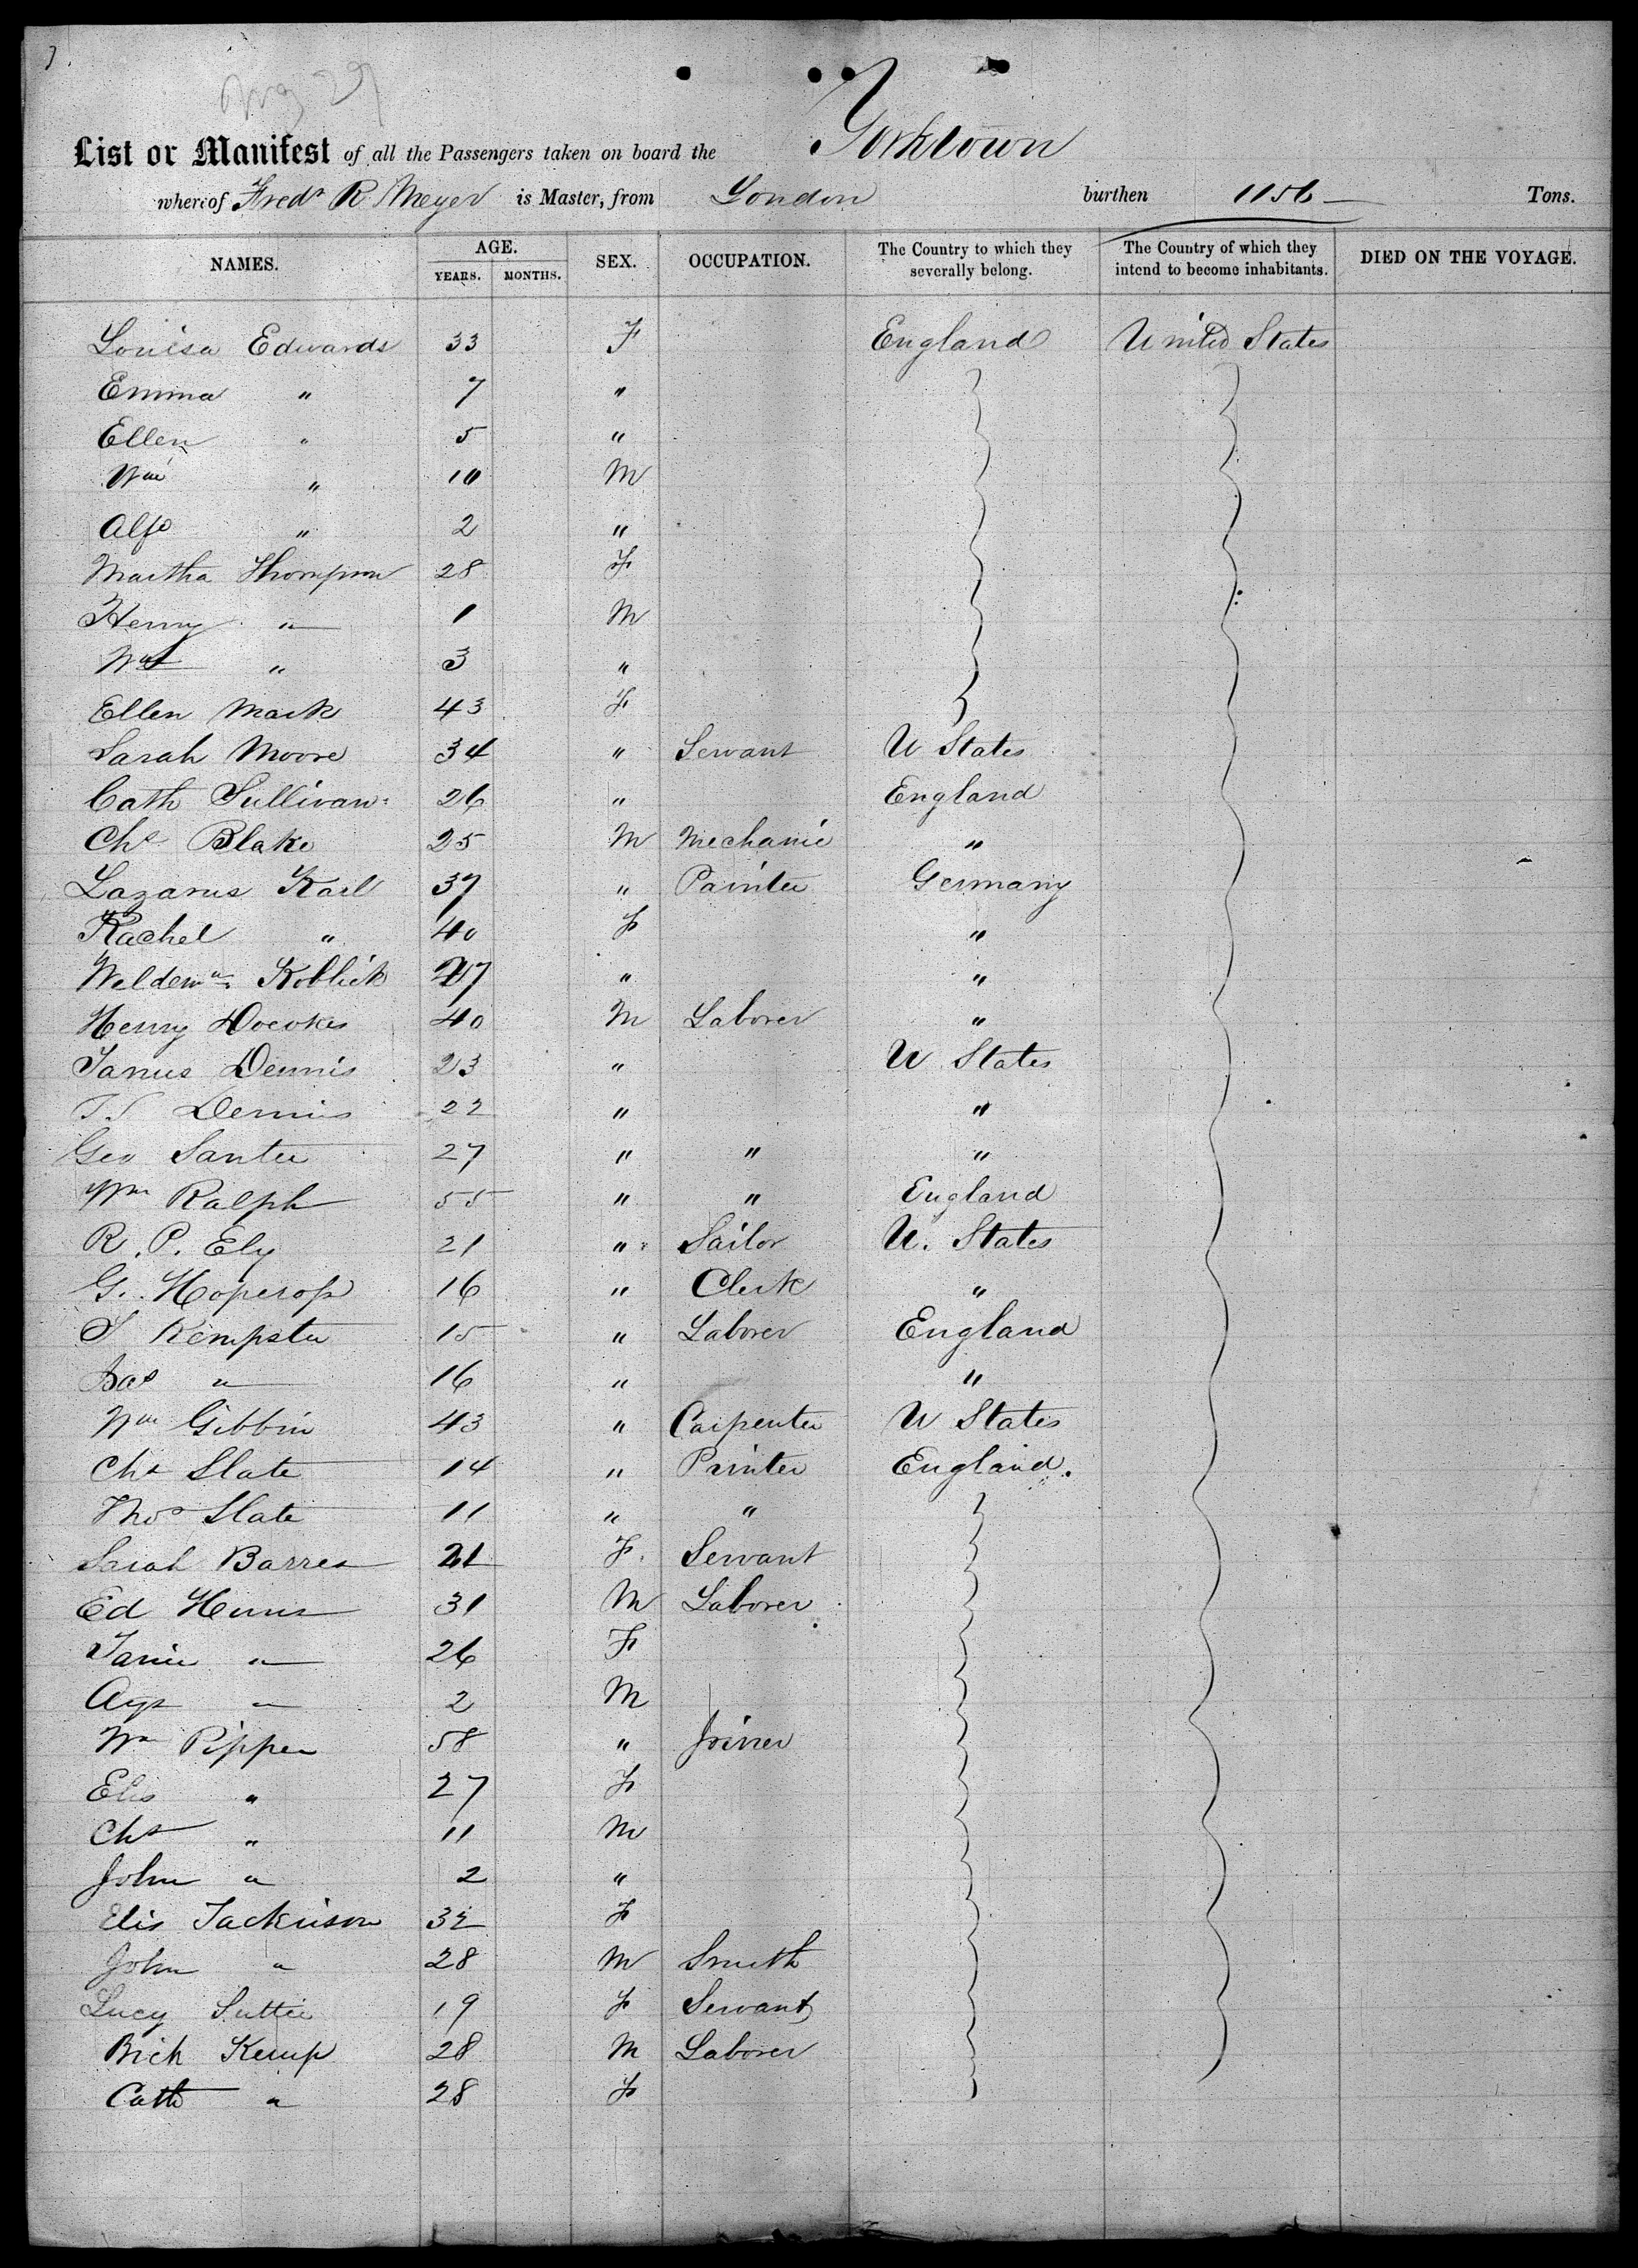 Aug 29
Yorktown
List or Manifest of all the Passengers taken on board the
whereof Fredk R Meyer is Master, from London burthen 1156 Tons.
NAMES. AGE. YEARS. MONTHS. SEX. OCCUPATION. The Country to which they severally belong. The Country of which they intend to become inhabitants. DIED ON THE VOYAGE.
Louisa Edwards 33 F England United States
Emma " 7 "
Ellen " 5 "
Wm " 10 M
Alfd " 2 "
Martha Thompson 28 F
Henry " 1 M
Wm " 3 "
Ellen Mark 43 F
Sarah Moore 34 " Servant U States
Cath Sullivan 26 " England
Chs Blake 25 M Mechanic "
Lazarus Karl 37 " Painter Germany
Rachel " 40 F "
Weldemn Koblick 27 " "
Henry 40 M Laborer "
James Dennis 23 " U States
T.S Dennis 22 " "
Geo Santer 27 " " "
Wm Ralph 55 " " England
R. P. Ely 21 " Sailor U. States
G. 16 " Clerk "
S Kempster 15 " Laborer England
" 16 " "
Wm Gibbin 43 " Carpenter U States
Chs Slate 14 " Painter England.
Thos Slate 11 " "
Sarah Barres 21 F. Servant
Ed 31 M Laborer
" 26 F
" 2 M
Wm Pipper 58 " Joiner
Elis " 27 F
Chs " 11 M
John " 2 "
Elis Jackinson 32 F
John " 28 M Smith
Lucy Suttie 19 F Servant
Rich Kemp 28 M Laborer
Cath " 28 F